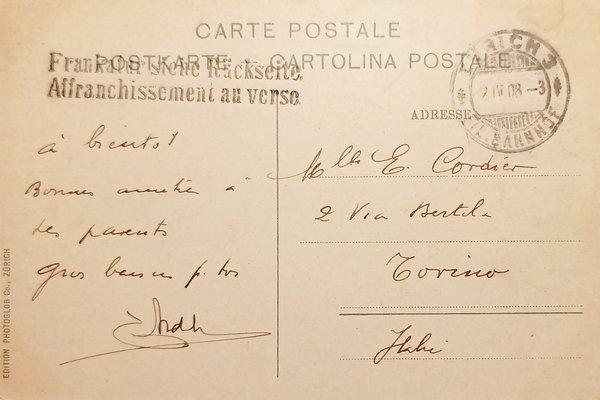 CARTE POSTALE
POSTKARTE — CARTOLINA POSTALE
Frankatur siehe Rückseite.
Affranchissement au verso
ZÜRICH 3
2 IV 08 – 3
ADRESSE
à bientôt
Bonnes amitiés à
tes parents
gros baisers p. toi
Mlle E. Cordier
2 Via Bertola
Torino
Italie
EDITION PHOTOGLOB Co., ZÜRICH